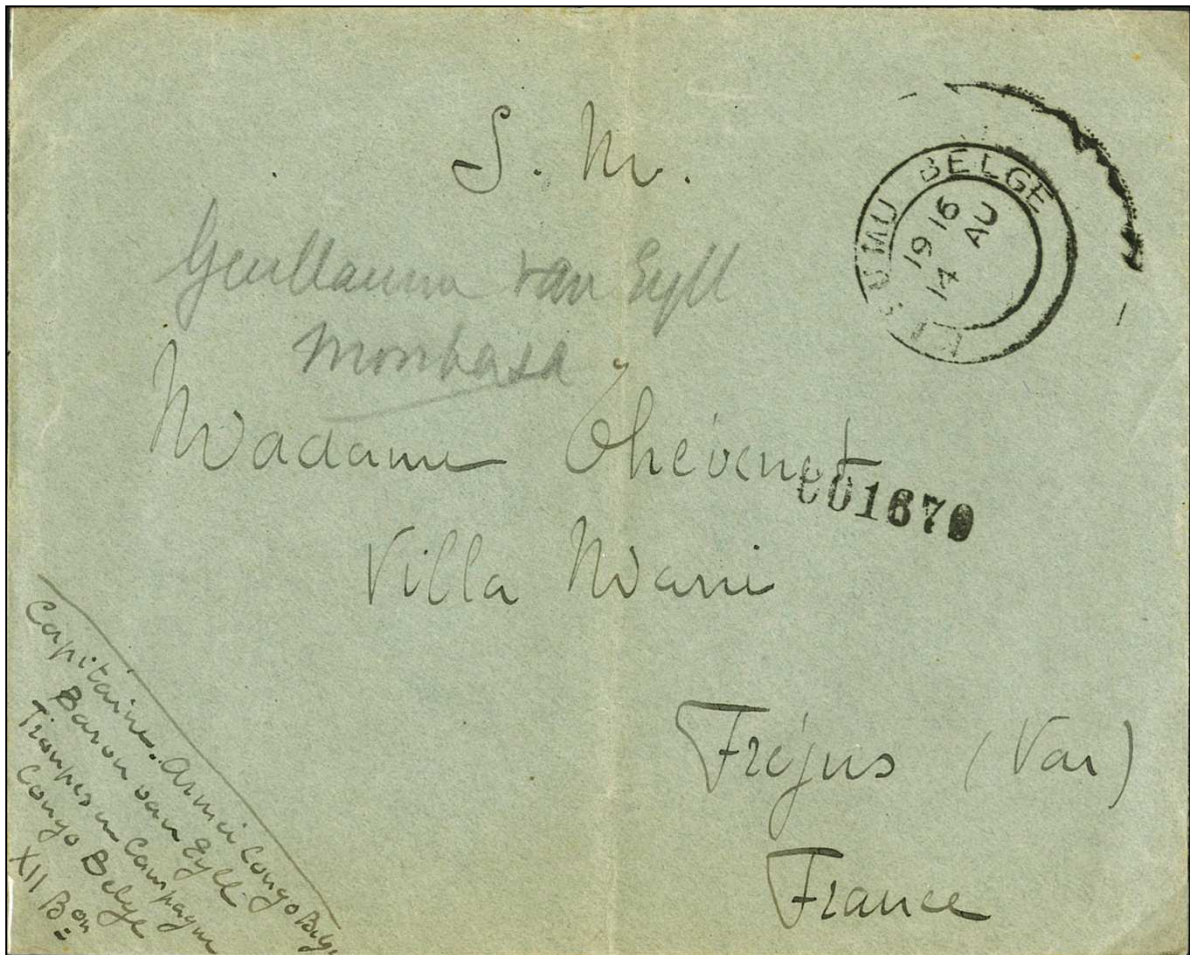 S. M.
KISUMU BELGE
19 16
14 AU
Guillaume van Eyll
Mombasa
Madame Thévenet
001670
Villa Marie
Fréjus (Var)
France
Capitaine. Armée Congo Belge
Baron van Eyll.
Troupes en Campagne
Congo Belge
XII Bon